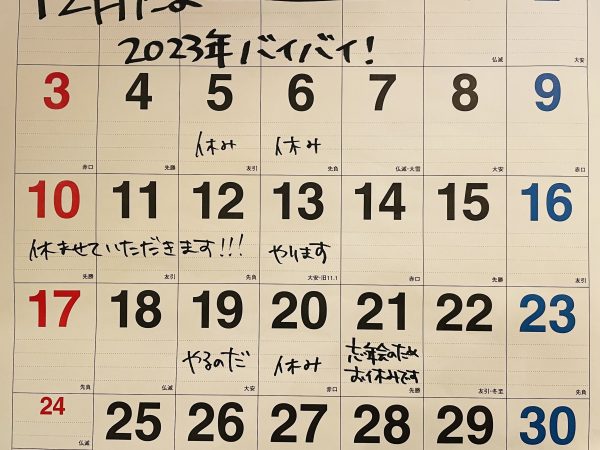 12月だよ
2023年バイバイ!
仏滅 大安
3 4 5 6 7 8 9
休み 休み
赤口 先勝 友引 先負 仏滅・大雪 大安 赤口
10 11 12 13 14 15 16
休ませていただきます!!! やります
先勝 友引 先負 大安・旧11.1 赤口 先勝 友引
17 18 19 20 21 22 23
やるのだ 休み 忘年会のため
お休みです
先負 仏滅 大安 赤口 先勝 友引・冬至 先負
24 25 26 27 28 29 30
仏滅